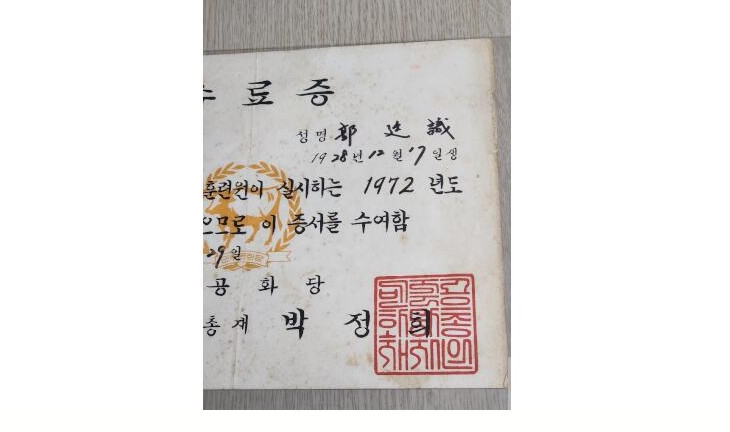 수료증
성명 郭 廷 識
1928년 12월 17일생
훈련원이 실시하는 1972 년도
으므로 이 증서를 수여함
29일
공 화 당
총재 박 정 희